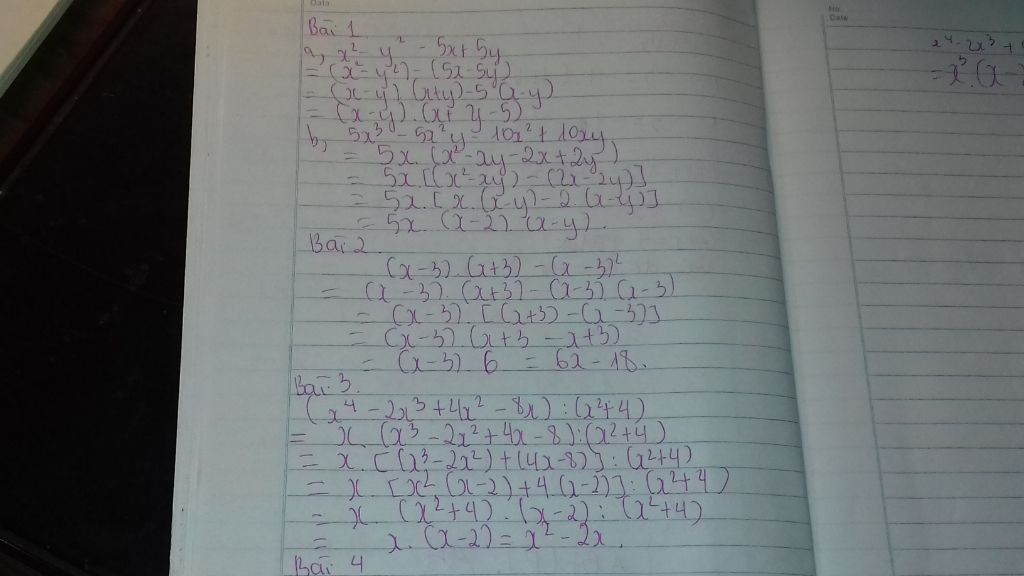 Data
Bài 1
a, x² - y² - 5x + 5y
= (x² - y²) - (5x - 5y)
= (x - y) (x + y) - 5 (x - y)
= (x - y) . (x + y - 5)
b, 5x³ - 5x²y - 10x² + 10xy
= 5x. (x² - xy - 2x + 2y)
= 5x. [(x² - xy) - (2x - 2y)]
= 5x. [x. (x - y) - 2. (x - y)]
= 5x. (x - 2). (x - y).
Bài 2
(x - 3). (x + 3) - (x - 3)²
= (x - 3). (x + 3) - (x - 3). (x - 3)
= (x - 3). [(x + 3) - (x - 3)]
= (x - 3). (x + 3 - x + 3)
= (x - 3). 6 = 6x - 18.
Bài 3.
(x⁴ - 2x³ + 4x² - 8x) : (x² + 4)
= x. (x³ - 2x² + 4x - 8) : (x² + 4)
= x. [(x³ - 2x²) + (4x - 8)] : (x² + 4)
= x. [x² (x - 2) + 4. (x - 2)] : (x² + 4)
= x. (x² + 4) . (x - 2) : (x² + 4)
= x. (x - 2) = x² - 2x.
Bài 4
No.
Date
x⁴ - 2x³ +
= x³. (x -